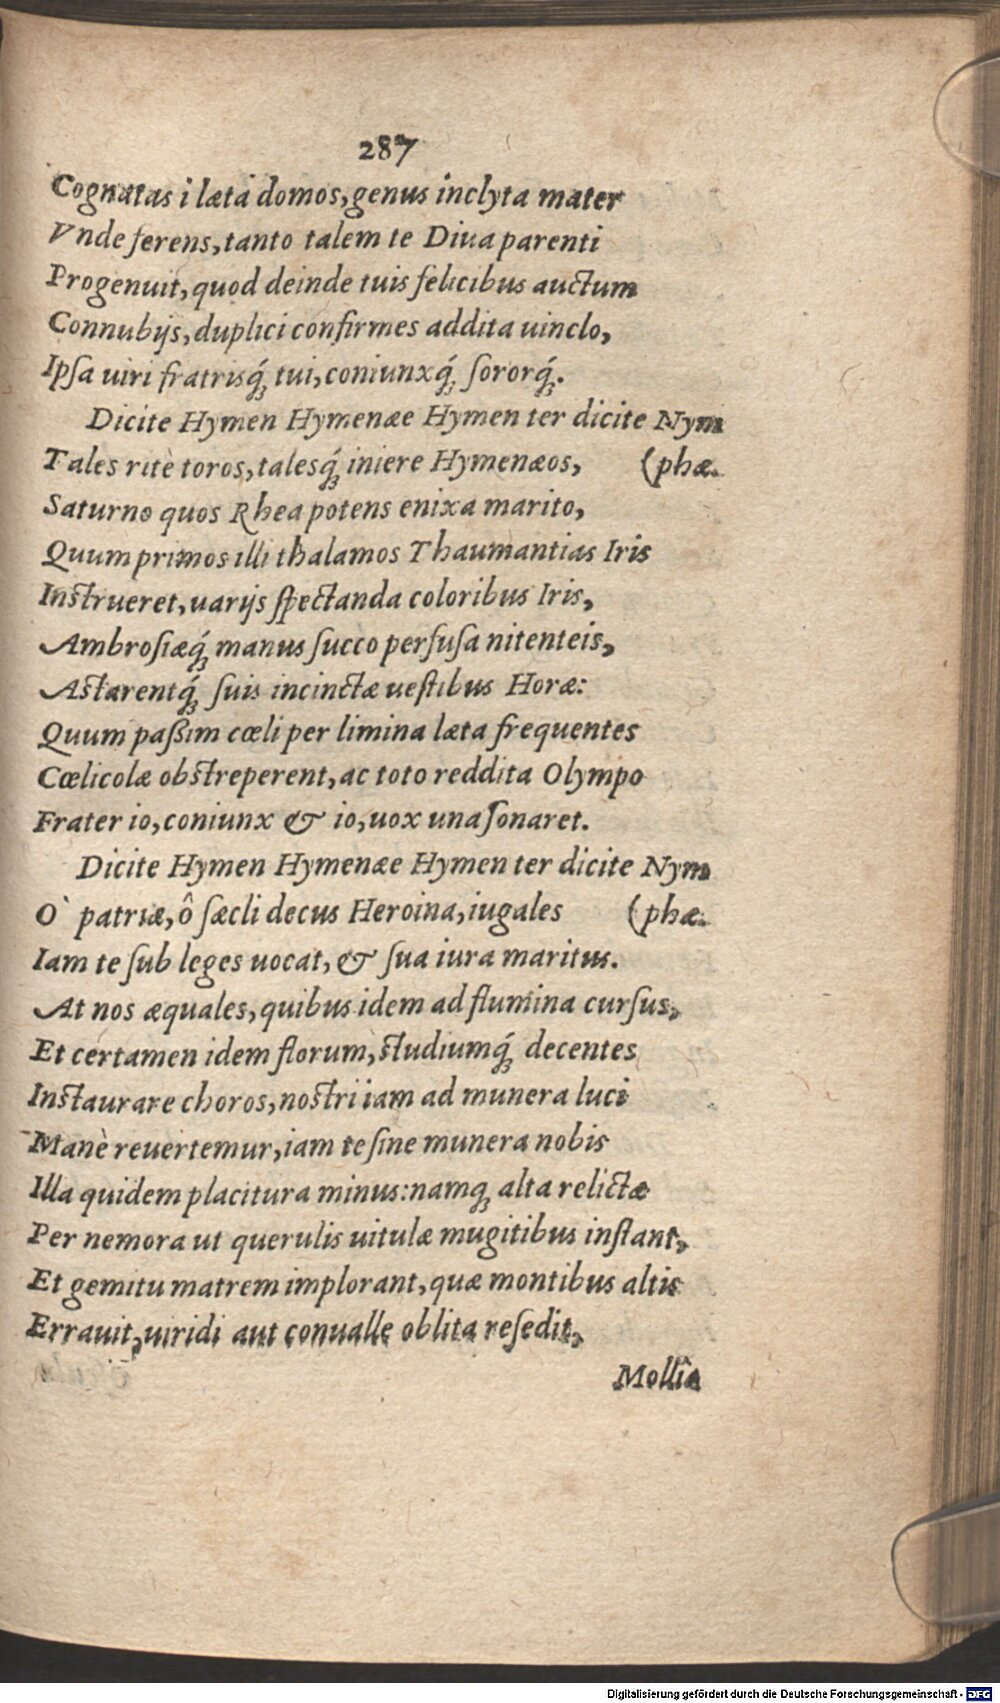 287
Cognatas i læta domos, genus inclyta mater
Vnde ferens, tanto talem te Diua parenti
Progenuit, quod deinde tuis felicibus auctum
Connubijs, duplici confirmes addita uinclo,
Ipſa uiri fratrisq́; tui, coniunxq́; ſororq́;.
Dicite Hymen Hymenæe Hymen ter dicite Nym
Tales ritè toros, talesq́; iniere Hymenæos, (phæ.
Saturno quos Rhea potens enixa marito,
Quum primos illi thalamos Thaumantias Iris
Inſtrueret, uarijs ſpectanda coloribus Iris,
Ambroſiæq́; manus ſucco perfuſa nitenteis,
Aſtarentq́; ſuis incinctæ ueſtibus Horæ:
Quum paßim cœli per limina læta frequentes
Cœlicolæ obſtreperent, ac toto reddita Olympo
Frater io, coniunx & io, uox una ſonaret.
Dicite Hymen Hymenæe Hymen ter dicite Nym
O` patriæ, ô ſæcli decus Heroina, iugales (phæ.
Iam te ſub leges uocat, & ſua iura maritus.
At nos æquales, quibus idem ad flumina curſus,
Et certamen idem florum, ſtudiumq́; decentes
Inſtaurare choros, noſtri iam ad munera luci
Manè reuertemur, iam te ſine munera nobis
Illa quidem placitura minus: namq; alta relictæ
Per nemora ut querulis uitulæ mugitibus inſtant,
Et gemitu matrem implorant, quæ montibus altis
Errauit, uiridi aut conualle oblita reſedit,
Mollia
Digitalisierung gefördert durch die Deutsche Forschungsgemeinschaft - DFG